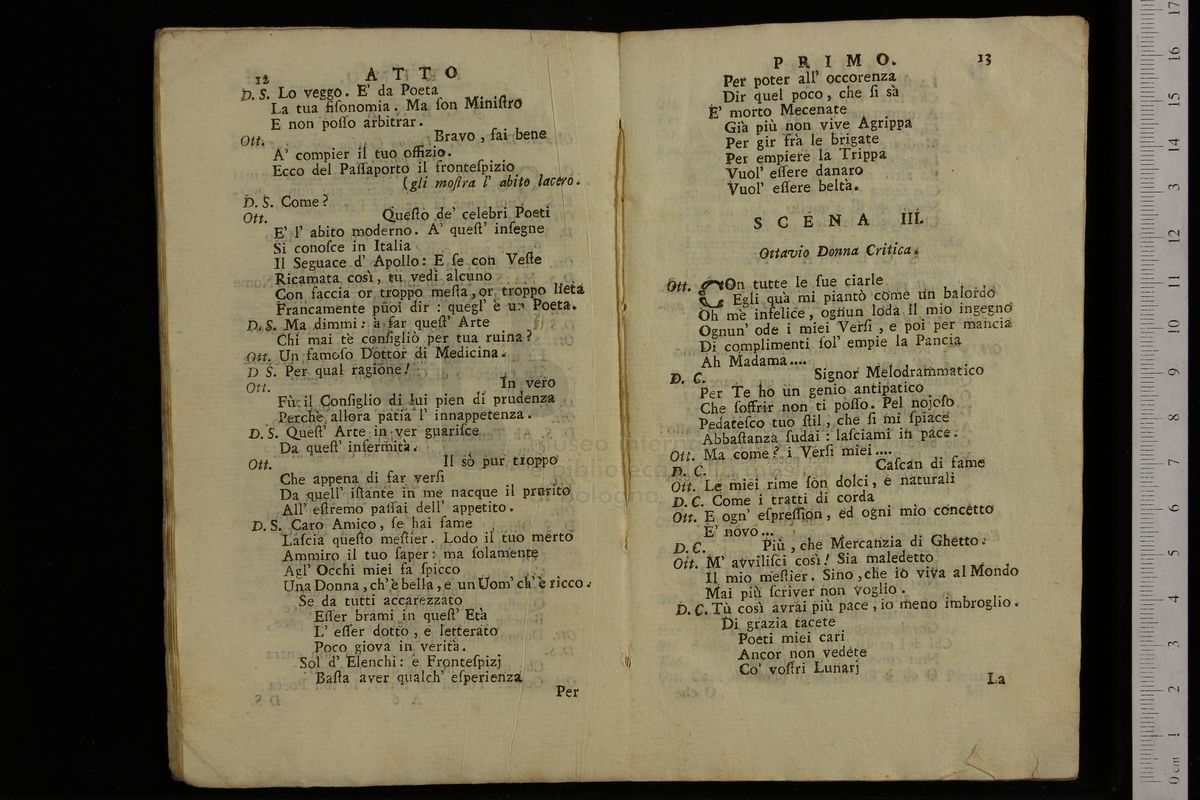 12 ATTO
D. S. Lo veggo. E' da Poeta
La tua fiſonomia. Ma ſon Miniſtro
E non poſſo arbitrar.
Ott. Bravo, fai bene
A' compier il tuo offizio.
Ecco del Paſſaporto il fronteſpizio
(gli moſtra l' abito lacero.
D. S. Come?
Ott. Queſto de' celebri Poeti
E' l' abito moderno. A' queſt' inſegne
Si conoſce in Italia
Il Seguace d' Apollo: E ſe con Veſte
Ricamata così, tu vedi alcuno
Con faccia or troppo meſta, or troppo lieta
Francamente puoi dir: quegl' è un Poeta.
D. S. Ma dimmi: à far queſt' Arte
Chi mai tè conſigliò per tua ruina?
Ott. Un famoſo Dottor di Medicina.
D S. Per qual ragione!
Ott. In vero
Fù il Conſiglio di lui pien di prudenza
Perchè allora patìa l' innappetenza.
D. S. Queſt' Arte in ver guariſce
Da queſt' infermità.
Ott. Il sò pur troppo
Che appena di far verſi
Da quell' iſtante in me nacque il prurito
All' eſtremo paſſai dell' appetito.
D. S. Caro Amico, ſe hai fame
Laſcia queſto meſtier. Lodo il tuo merto
Ammiro il tuo ſaper: ma ſolamente
Agl' Occhi miei fa ſpicco
Una Donna, ch' è bella, e un Uom' ch' è ricco.
Se da tutti accarezzato
Eſſer brami in queſt' Età
L' eſſer dotto, e letterato
Poco giova in verità.
Sol d' Elenchi: e Fronteſpizj
Baſta aver qualch' eſperienza
Per
PRIMO. 13
Per poter all' occorenza
Dir quel poco, che ſi sà
E' morto Mecenate
Già più non vive Agrippa
Per gir frà le brigate
Per empiere la Trippa
Vuol' eſſere danaro
Vuol' eſſere beltà.
SCENA III.
Ottavio Donna Critica.
Ott. COn tutte le ſue ciarle
Egli quà mi piantò come un balordo
Oh me infelice, ognun loda il mio ingegno
Ognun' ode i miei Verſi, e poi per mancia
Di complimenti ſol' empie la Pancia
Ah Madama....
D. C. Signor Melodrammatico
Per Te ho un genio antipatico
Che ſoffrir non ti poſſo. Pel nojoſo
Pedateſco tuo ſtil, che ſi mi ſpiace
Abbaſtanza ſudai: laſciami in pace.
Ott. Ma come? i Verſi miei....
D. C. Caſcan di fame
Ott. Le miei rime ſon dolci, e naturali
D. C. Come i tratti di corda
Ott. E ogn' eſpreſſion, ed ogni mio concetto
E' novo...
D. C. Più, che Mercanzia di Ghetto.
Ott. M' avviliſci così! Sia maledetto
Il mio meſtier. Sino, che iò viva al Mondo
Mai più ſcriver non voglio.
D. C. Tù così avrai più pace, io meno imbroglio.
Di grazia tacete
Poeti miei cari
Ancor non vedete
Co' voſtri Lunarj
La